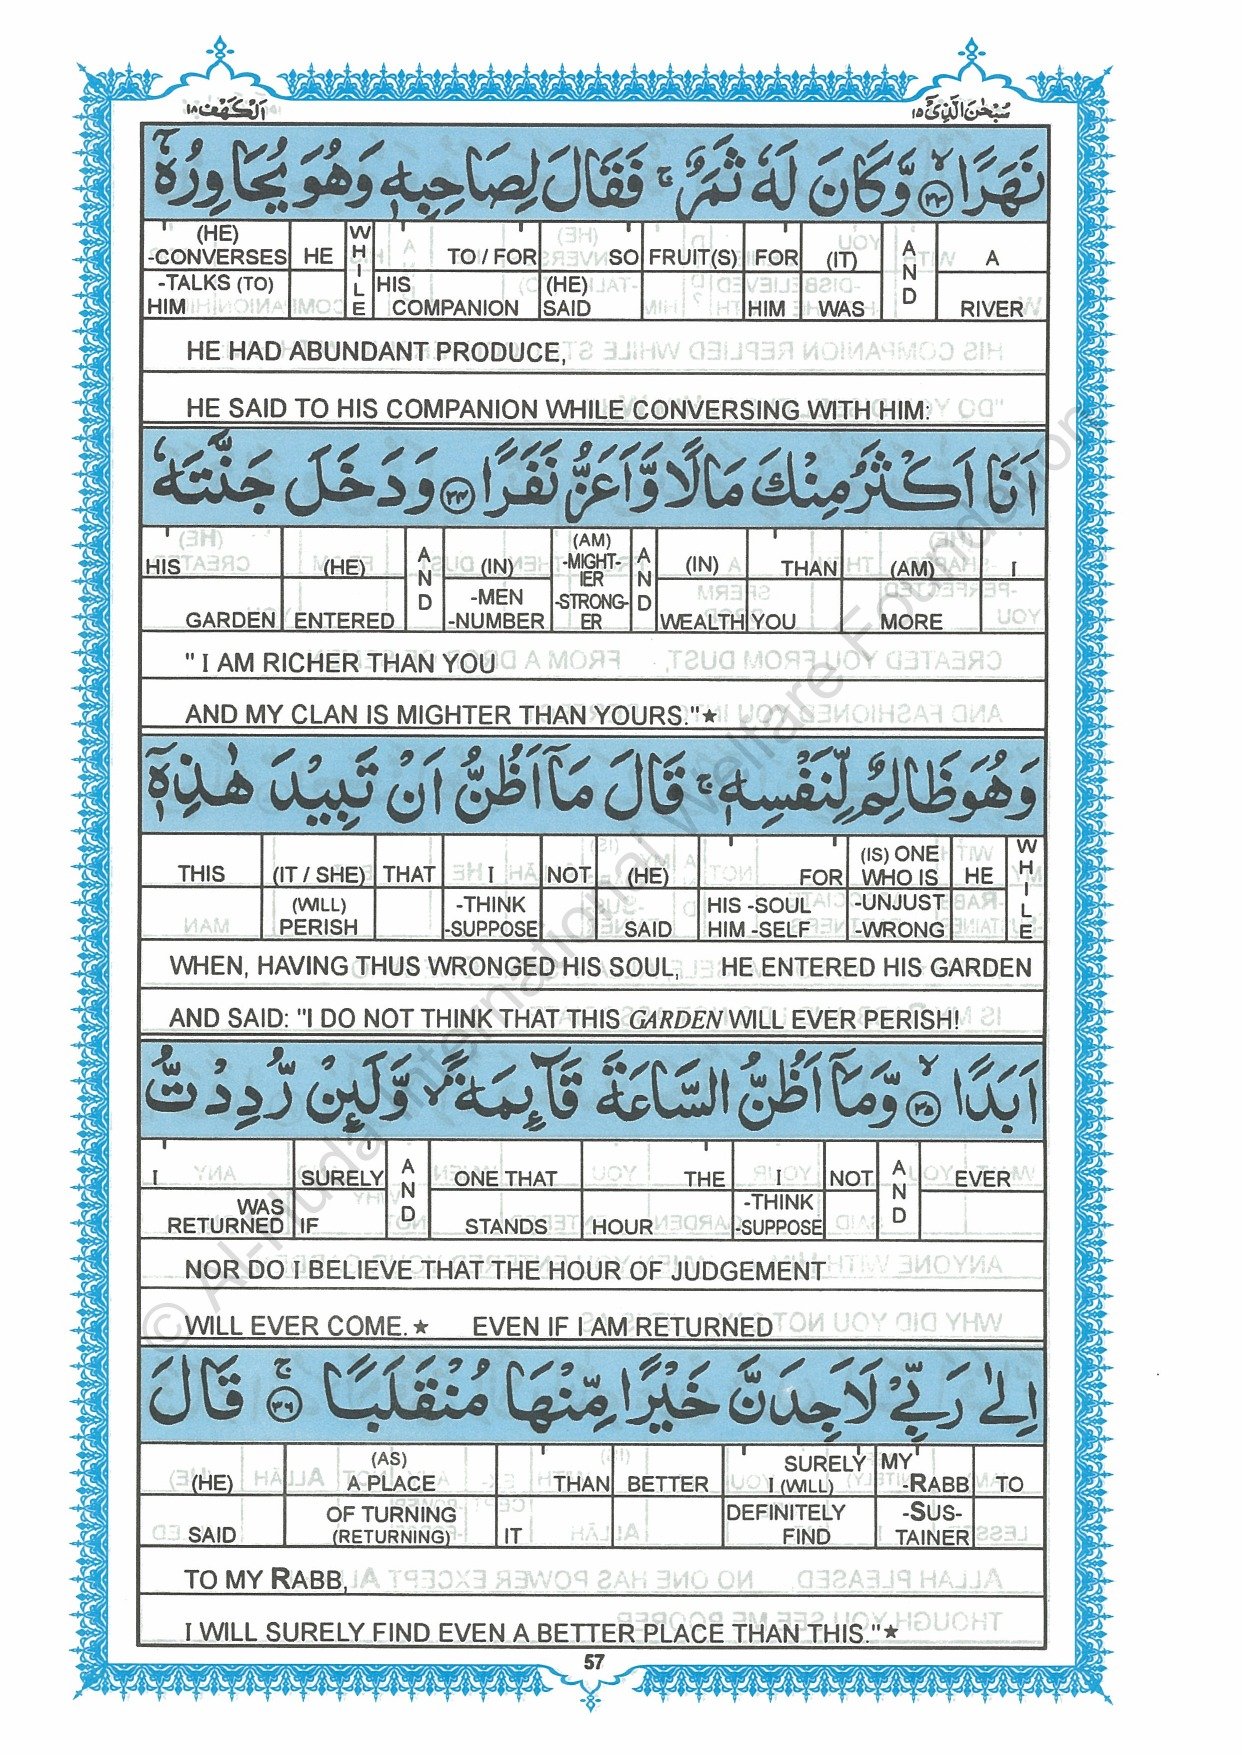 سُبْحٰنَ الَّذِيْٓ ١٥
اَلْكَهْف ١٨
نَهَرًا ۙ﴿٣٣﴾ وَّكَانَ لَهٗ ثَمَرٌ ۚ فَقَالَ لِصَاحِبِهٖ وَهُوَ يُحَاوِرُهٗٓ
A RIVER | AND | (IT) WAS | FOR HIM | FRUIT(S) | SO (HE) SAID | TO / FOR HIS COMPANION | WHILE | HE | (HE) -CONVERSES -TALKS (TO) HIM
HE HAD ABUNDANT PRODUCE,
HE SAID TO HIS COMPANION WHILE CONVERSING WITH HIM:
اَنَا اَكْثَرُ مِنْكَ مَالًا وَّاَعَزُّ نَفَرًا ﴿٣٤﴾ وَدَخَلَ جَنَّتَهٗ
I | (AM) MORE | THAN YOU | (IN) WEALTH | AND | (AM) -MIGHT-IER -STRONG-ER | (IN) -MEN -NUMBER | AND | (HE) ENTERED | HIS GARDEN
" I AM RICHER THAN YOU
AND MY CLAN IS MIGHTER THAN YOURS."★
وَهُوَ ظَالِمٌ لِّنَفْسِهٖ ۚ قَالَ مَآ اَظُنُّ اَنْ تَبِيْدَ هٰذِهٖٓ
WHILE | HE | (IS) ONE WHO IS -UNJUST -WRONG | FOR HIS -SOUL HIM -SELF | (HE) SAID | NOT | I -THINK -SUPPOSE | THAT | (IT / SHE) (WILL) PERISH | THIS
WHEN, HAVING THUS WRONGED HIS SOUL, HE ENTERED HIS GARDEN
AND SAID: "I DO NOT THINK THAT THIS GARDEN WILL EVER PERISH!
اَبَدًا ۙ﴿٣٥﴾ وَّمَآ اَظُنُّ السَّاعَةَ قَآئِمَةً ۙ وَّلَئِنْ رُّدِدْتُّ
EVER | AND | NOT | I -THINK -SUPPOSE | THE HOUR | ONE THAT STANDS | AND | SURELY IF | I WAS RETURNED
NOR DO I BELIEVE THAT THE HOUR OF JUDGEMENT
WILL EVER COME.★ EVEN IF I AM RETURNED
اِلٰى رَبِّيْ لَاَجِدَنَّ خَيْرًا مِّنْهَا مُنْقَلَبًا ۚ﴿٣٦﴾ قَالَ
TO | MY -RABB -SUS-TAINER | SURELY I (WILL) DEFINITELY FIND | BETTER | THAN IT | (AS) A PLACE OF TURNING (RETURNING) | (HE) SAID
TO MY RABB,
I WILL SURELY FIND EVEN A BETTER PLACE THAN THIS."★
57
© Al-Huda International Welfare Foundation